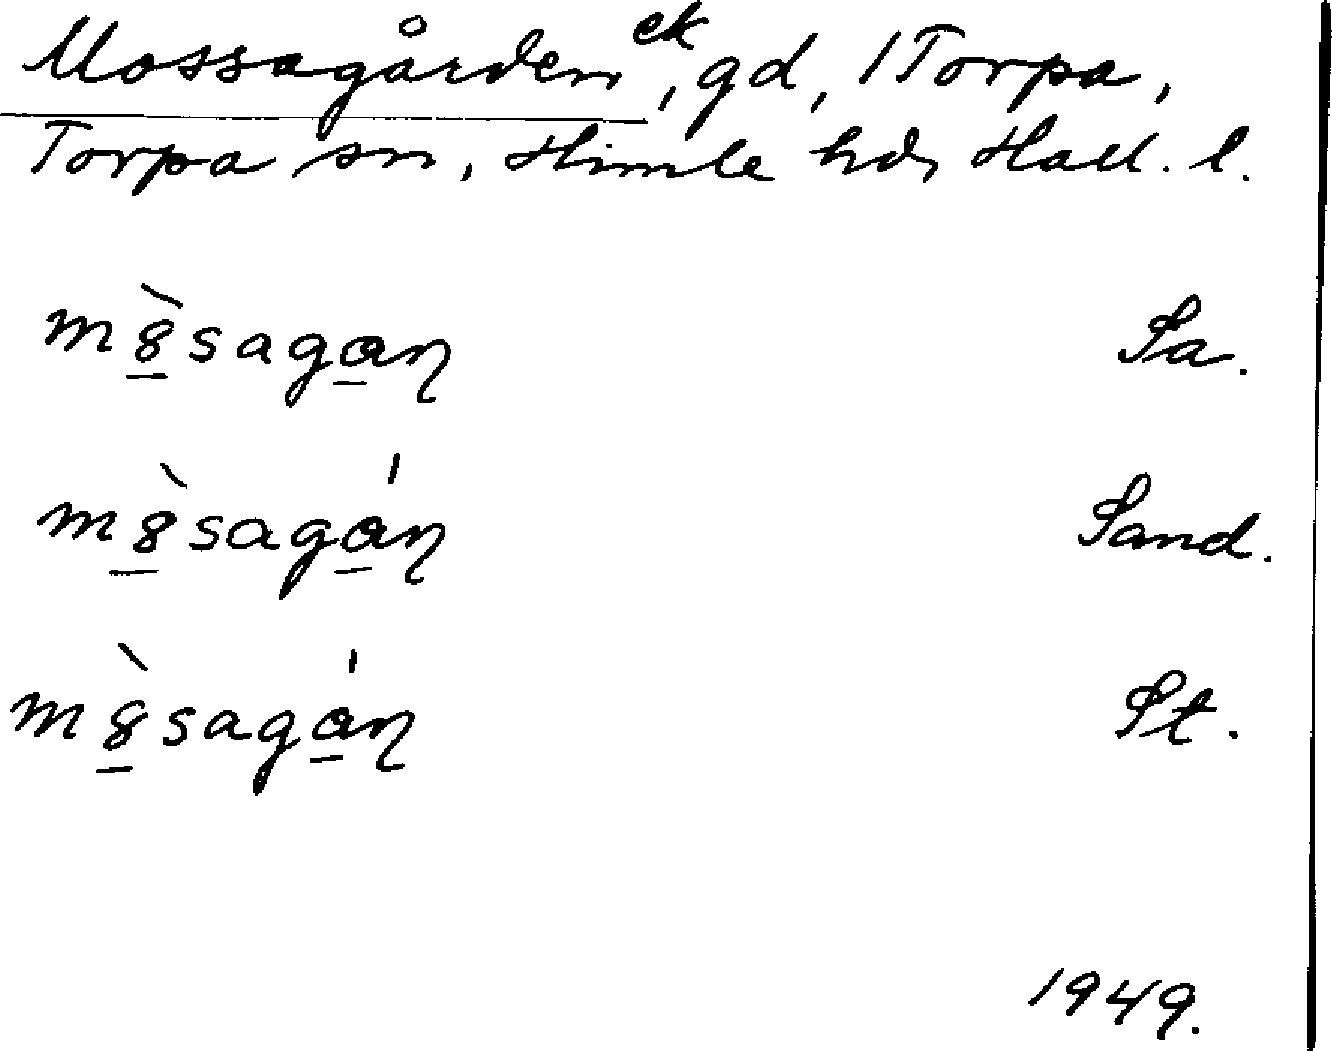 Mossagården ek, gd, 1 Torpa,
Torpa sn, Himle hd, Hall. l.
m8̠̀saga̠ɳ Sa.
m8̠̀sagá̠ɳ Sand.
m8̠̀sagá̠ɳ St.
1949.